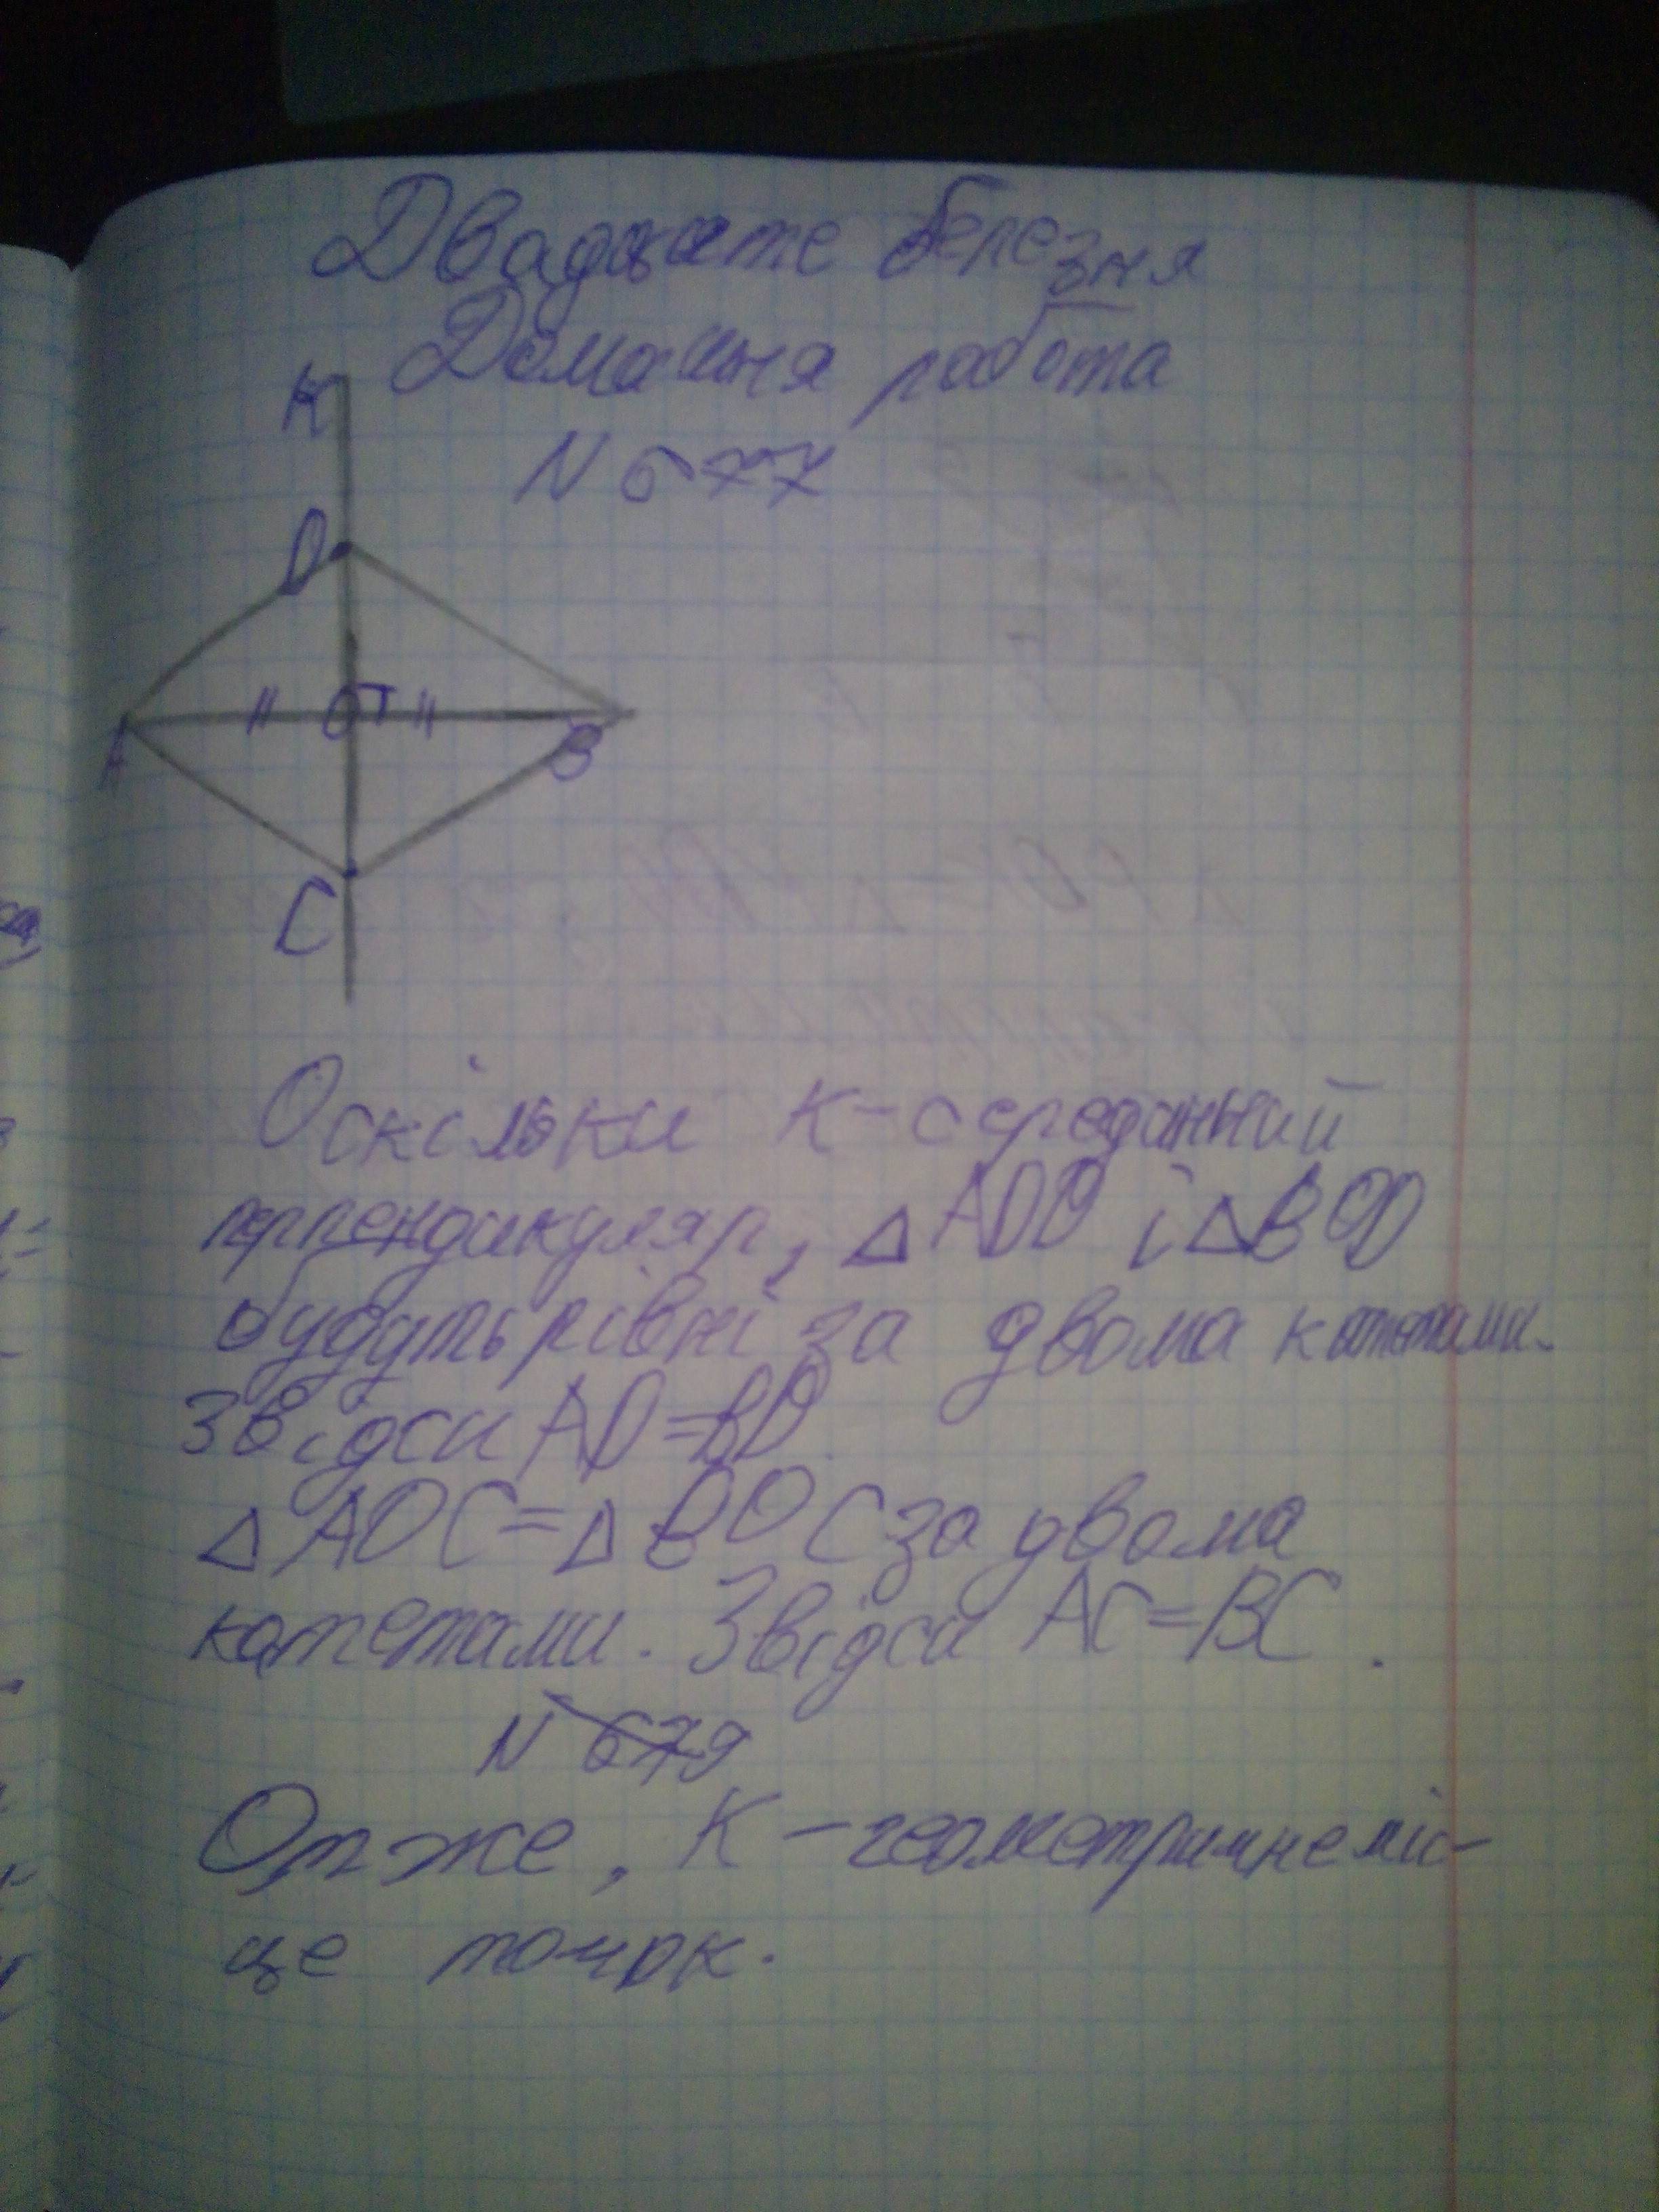 Двадцяте березня
Домашня работа
N 677
K
D
A
O
B
C
Оскільки K - серединний
перпендикуляр, △ ADO і △BOD
будуть рівні за двома катетами.
Звідси AD=BD.
△ AOC=△ BOC за двома
катетами. Звідси AC=BC.
N 679
Отже, K - геометричне міс-
це точок.